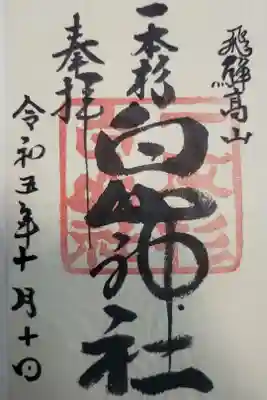 飛騨高山
一本杉
白山神社
奉拝
令和五年十月十日